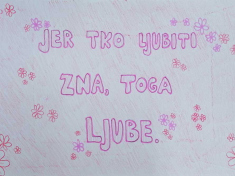 JER TKO LJUBITI
ZNA, TOGA
LJUBE.